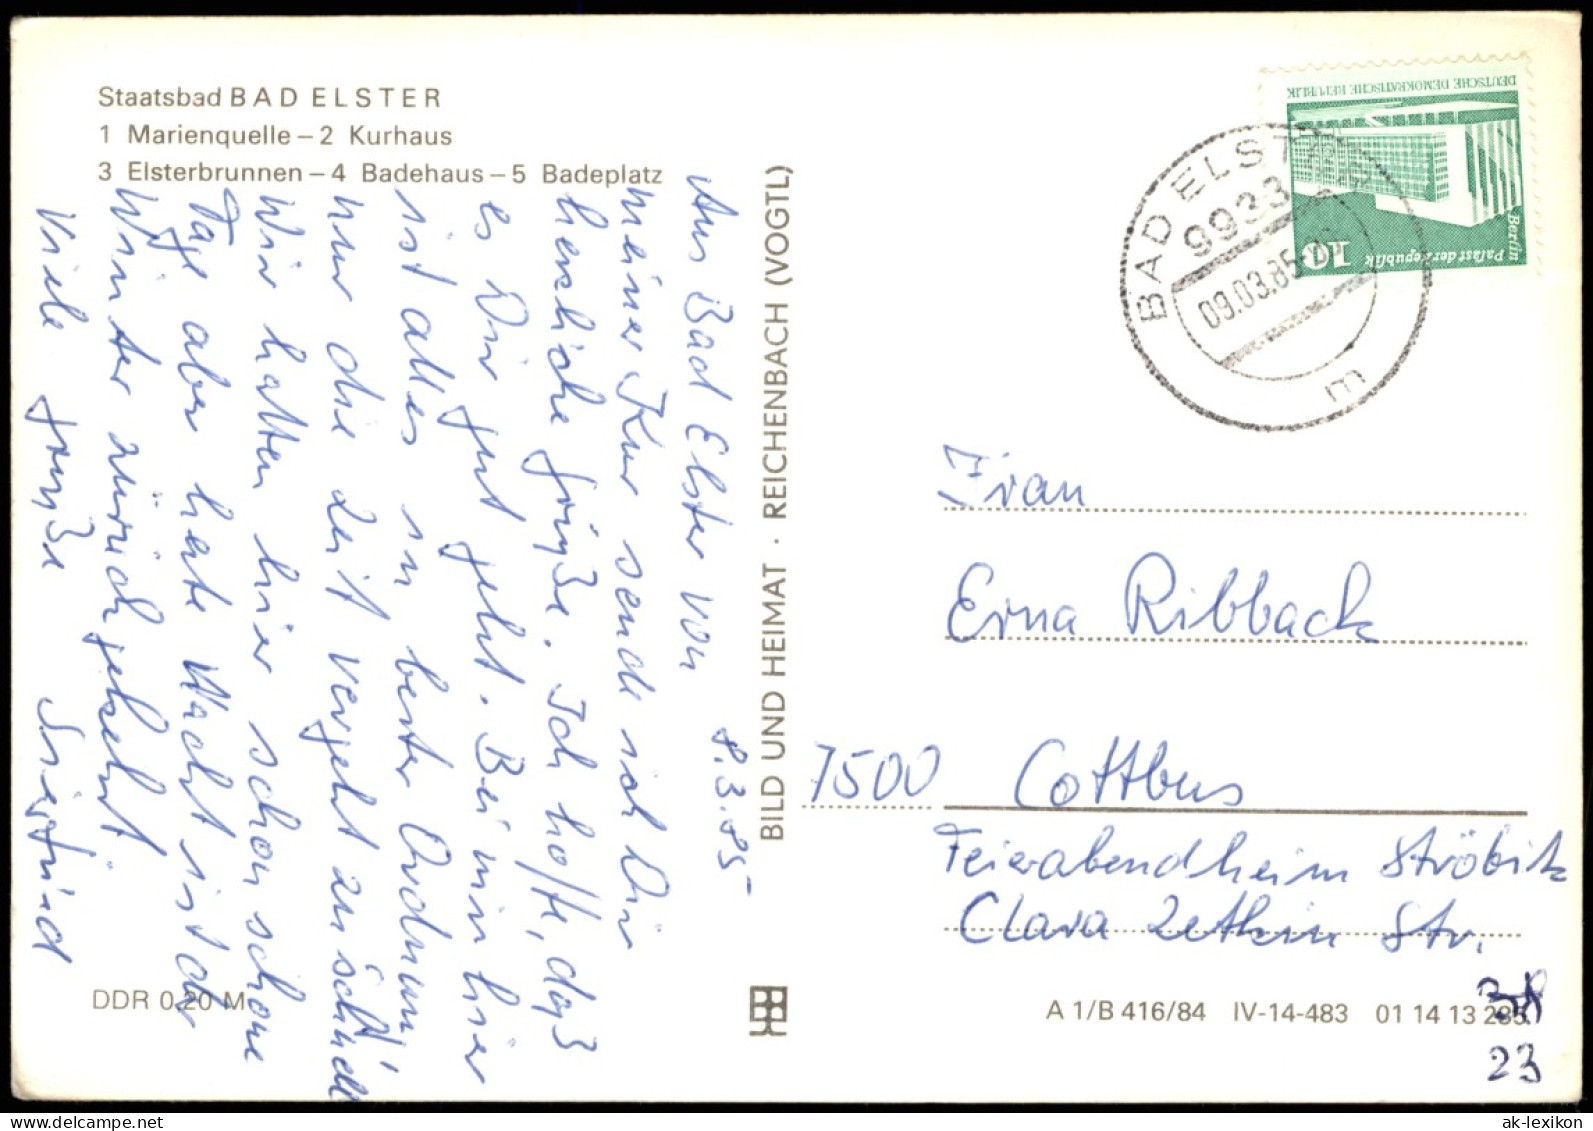 Staatsbad BAD ELSTER
1 Marienquelle – 2 Kurhaus
3 Elsterbrunnen – 4 Badehaus – 5 Badeplatz
8.3.85
Aus Bad Elster von
meiner Kur sende ich Dir
herzliche Grüße. Ich hoffe, daß
es Dir gut geht. Bei mir hier
ist alles in bester Ordnung,
nur die Zeit vergeht zu schnell
Wir hatten hier schon schöne
Tage aber heute Nacht ist der
Winter zurückgekehrt
Viele Grüße Siegfried
DDR 0,20 M
BILD UND HEIMAT · REICHENBACH (VOGTL)
DEUTSCHE DEMOKRATISCHE REPUBLIK
10
Palast der Republik
Berlin
BAD ELSTER
9933
09.03.85
m
Frau
Erna Ribback
7500 Cottbus
Feierabendheim Ströbitz
Clara Zetkin Str.
23
A 1/B 416/84 IV-14-483 01 14 13 285
ak-lexikon